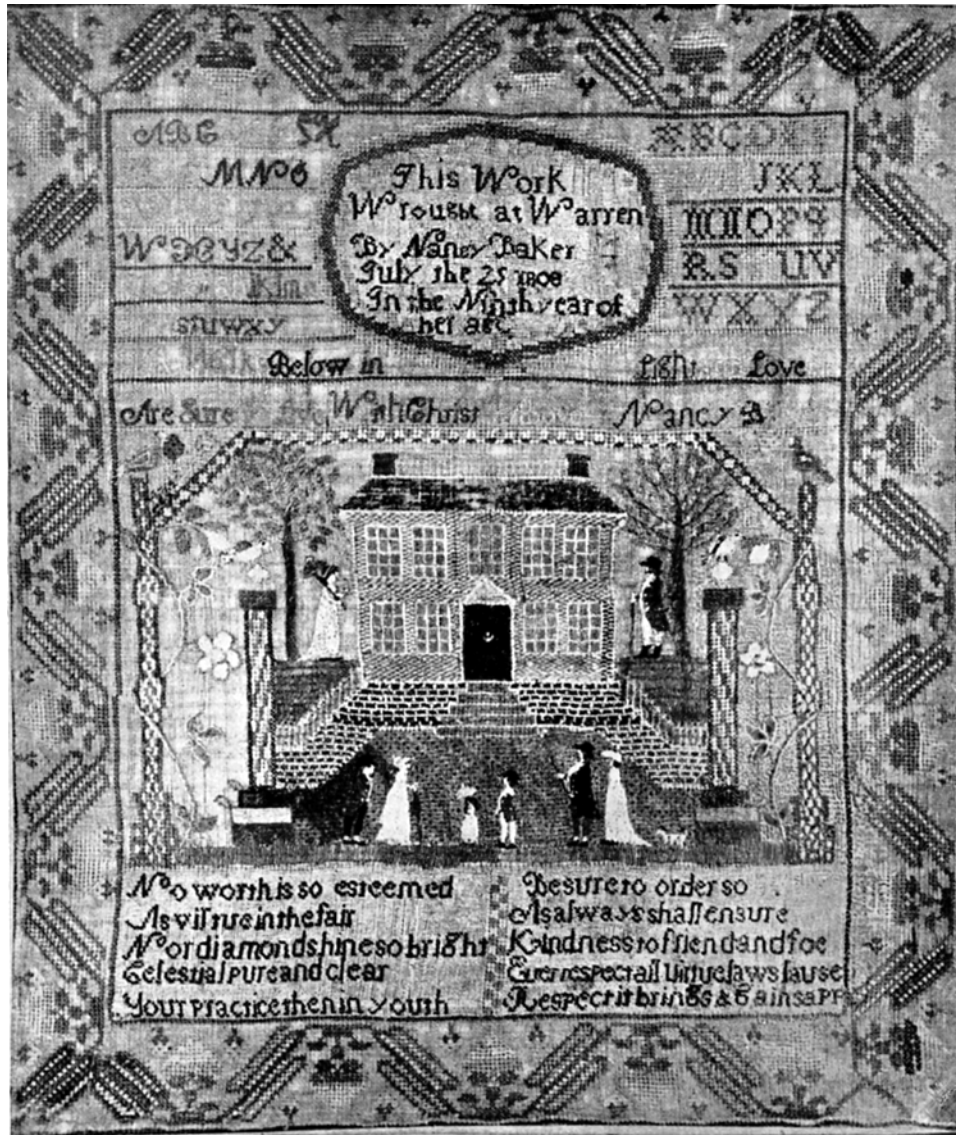 ABC
MNO
WXYZ&
Klm
stuwxy
ABCD
JKL
MNOPQ
RS UV
WXYZ
This Work
Wrought at Warren
By Nancy Baker
July the 25 1808
In the Ninth year of
her age
Below in Light Love
Are Sure With Christ Nancy B
No worth is so esteemed
As virtue in the fair
Nor diamond shine so bright
Celestial pure and clear
Your practice then in youth
Be sure to order so
As always shall ensure
Kindness to friend and foe
Respect it brings & Gains